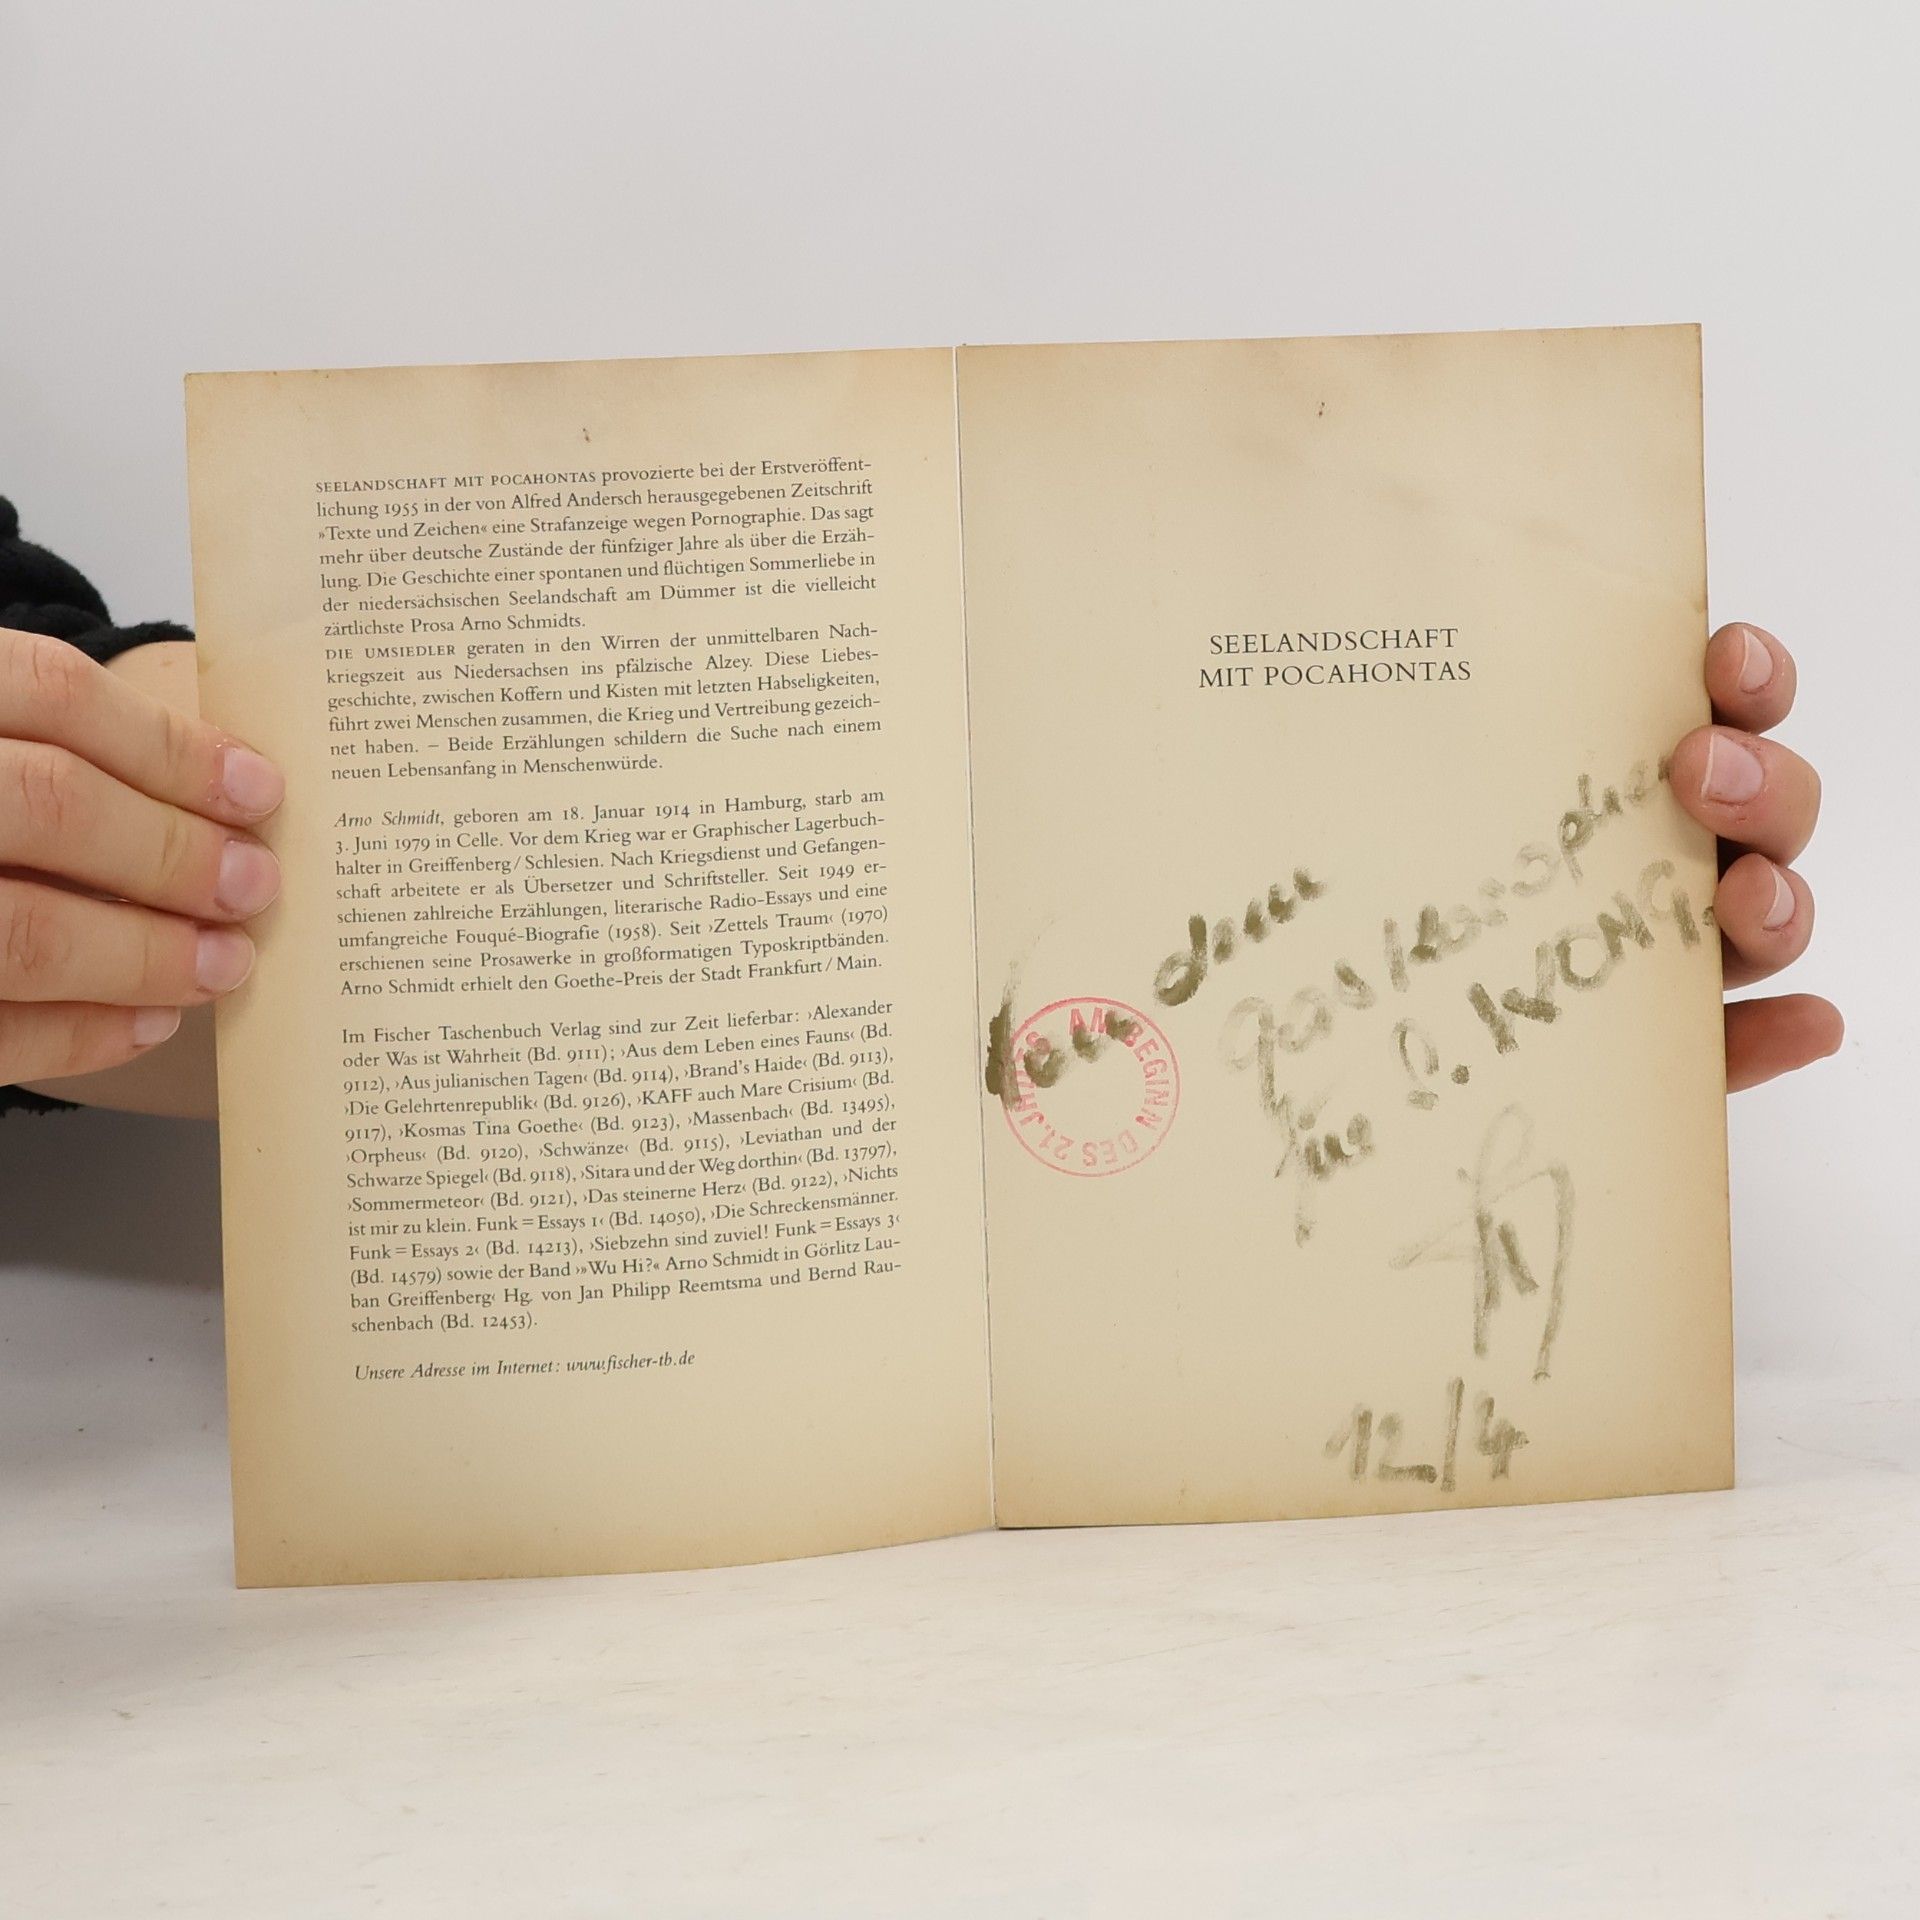 SEELANDSCHAFT MIT POCAHONTAS provozierte bei der Erstveröffent-
lichung 1955 in der von Alfred Andersch herausgegebenen Zeitschrift
»Texte und Zeichen« eine Strafanzeige wegen Pornographie. Das sagt
mehr über deutsche Zustände der fünfziger Jahre als über die Erzäh-
lung. Die Geschichte einer spontanen und flüchtigen Sommerliebe in
der niedersächsischen Seelandschaft am Dümmer ist die vielleicht
zärtlichste Prosa Arno Schmidts.
DIE UMSIEDLER geraten in den Wirren der unmittelbaren Nach-
kriegszeit aus Niedersachsen ins pfälzische Alzey. Diese Liebes-
geschichte, zwischen Koffern und Kisten mit letzten Habseligkeiten,
führt zwei Menschen zusammen, die Krieg und Vertreibung gezeich-
net haben. – Beide Erzählungen schildern die Suche nach einem
neuen Lebensanfang in Menschenwürde.
Arno Schmidt, geboren am 18. Januar 1914 in Hamburg, starb am
3. Juni 1979 in Celle. Vor dem Krieg war er Graphischer Lagerbuch-
halter in Greiffenberg / Schlesien. Nach Kriegsdienst und Gefangen-
schaft arbeitete er als Übersetzer und Schriftsteller. Seit 1949 er-
schienen zahlreiche Erzählungen, literarische Radio-Essays und eine
umfangreiche Fouqué-Biografie (1958). Seit ›Zettels Traum‹ (1970)
erschienen seine Prosawerke in großformatigen Typoskriptbänden.
Arno Schmidt erhielt den Goethe-Preis der Stadt Frankfurt / Main.
Im Fischer Taschenbuch Verlag sind zur Zeit lieferbar: ›Alexander
oder Was ist Wahrheit (Bd. 9111); ›Aus dem Leben eines Fauns‹ (Bd.
9112), ›Aus julianischen Tagen‹ (Bd. 9114), ›Brand's Haide‹ (Bd. 9113),
›Die Gelehrtenrepublik‹ (Bd. 9126), ›KAFF auch Mare Crisium‹ (Bd.
9117), ›Kosmas Tina Goethe‹ (Bd. 9123), ›Massenbach‹ (Bd. 13495),
›Orpheus‹ (Bd. 9120), ›Schwänze‹ (Bd. 9115), ›Leviathan und der
Schwarze Spiegel‹ (Bd. 9118), ›Sitara und der Weg dorthin‹ (Bd. 13797),
›Sommermeteor‹ (Bd. 9121), ›Das steinerne Herz‹ (Bd. 9122), ›Nichts
ist mir zu klein. Funk = Essays 1‹ (Bd. 14050), ›Die Schreckensmänner.
Funk = Essays 2‹ (Bd. 14213), ›Siebzehn sind zuviel! Funk = Essays 3‹
(Bd. 14579) sowie der Band ›»Wu Hi?« Arno Schmidt in Görlitz Lau-
ban Greiffenberg‹ Hg. von Jan Philipp Reemtsma und Bernd Rau-
schenbach (Bd. 12453).
Unsere Adresse im Internet: www.fischer-tb.de
SEELANDSCHAFT
MIT POCAHONTAS
AM BEGINN DES 21. JHDTES
für
12/4